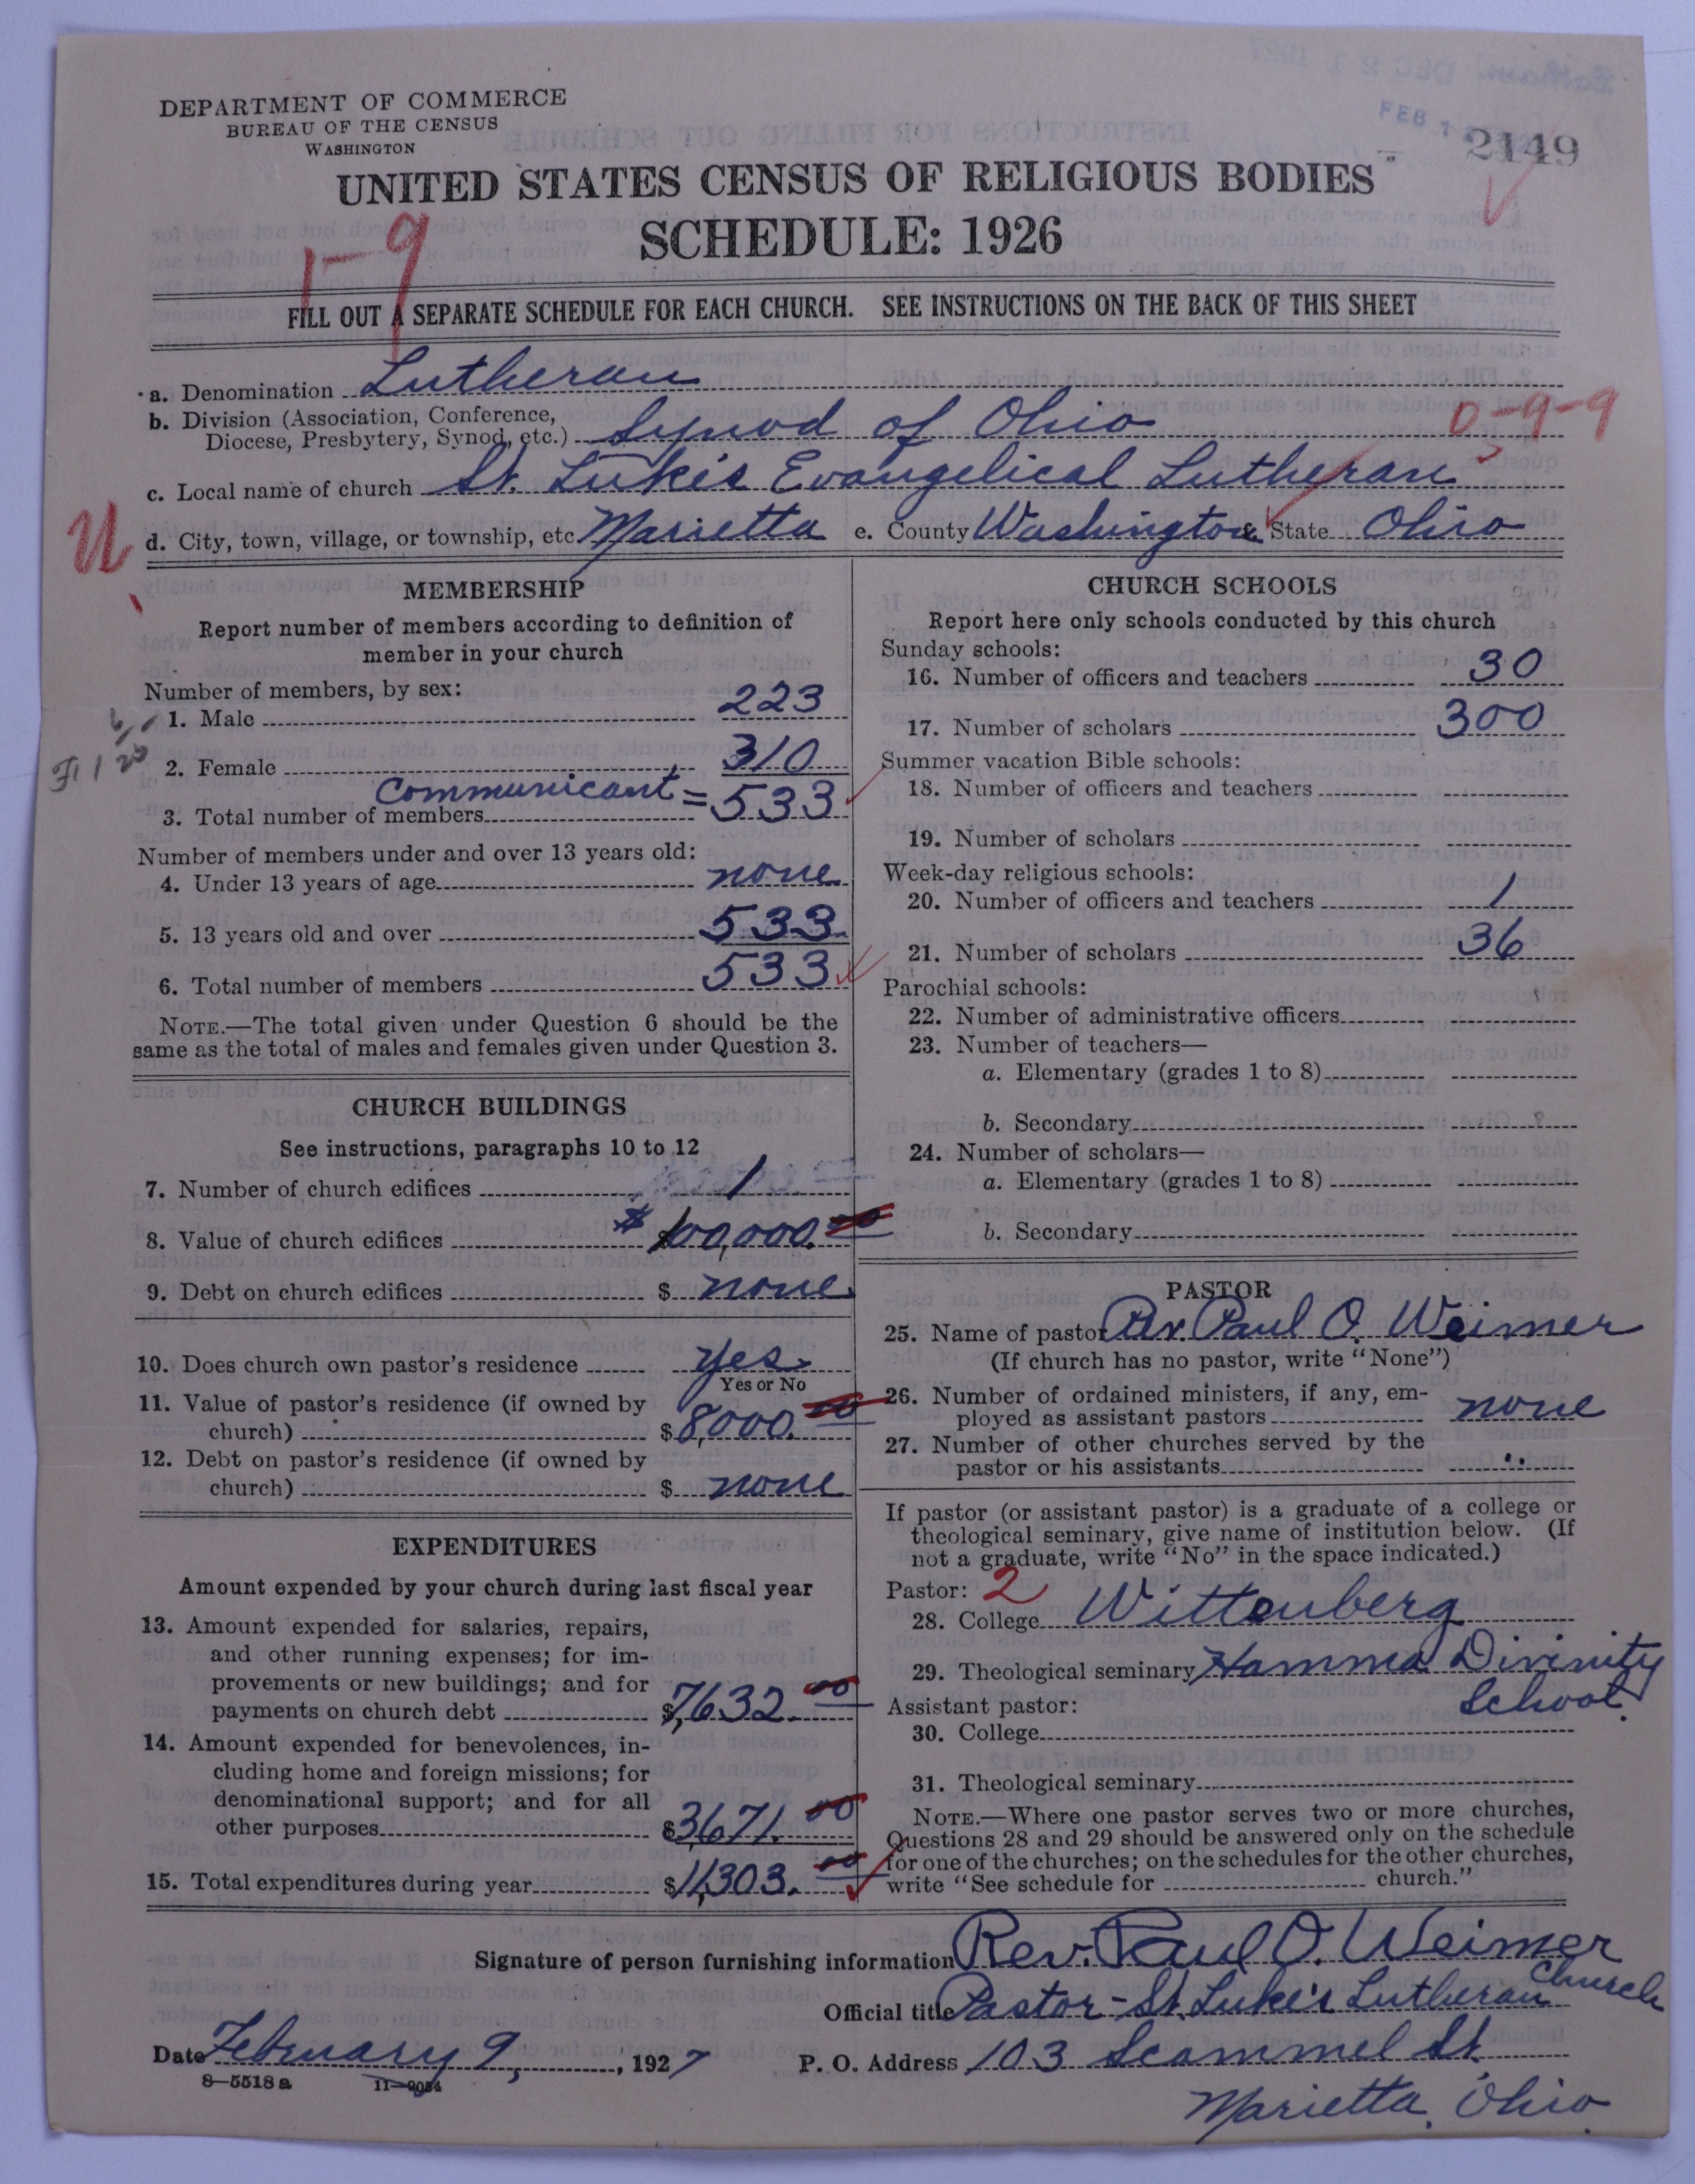 DEPARTMENT OF COMMERCE
BUREAU OF THE CENSUS
WASHINGTON
FEB 1
2149
UNITED STATES CENSUS OF RELIGIOUS BODIES
SCHEDULE: 1926
1-9
FILL OUT A SEPARATE SCHEDULE FOR EACH CHURCH. SEE INSTRUCTIONS ON THE BACK OF THIS SHEET
a. Denomination Lutheran
b. Division (Association, Conference,
Diocese, Presbytery, Synod, etc.) Synod of Ohio 0-9-9
c. Local name of church St. Luke's Evangelical Lutheran
U
d. City, town, village, or township, etc. Marietta e. County Washington State Ohio
MEMBERSHIP
Report number of members according to definition of
member in your church
Number of members, by sex:
1. Male 223
2. Female 310
Communicant =
3. Total number of members 533
Number of members under and over 13 years old:
4. Under 13 years of age none
5. 13 years old and over 533
6. Total number of members 533
NOTE.—The total given under Question 6 should be the
same as the total of males and females given under Question 3.
CHURCH BUILDINGS
See instructions, paragraphs 10 to 12
7. Number of church edifices 1
8. Value of church edifices $100,000.00
9. Debt on church edifices $ none
10. Does church own pastor's residence Yes
Yes or No
11. Value of pastor's residence (if owned by
church) $8,000.00
12. Debt on pastor's residence (if owned by
church) $ none
EXPENDITURES
Amount expended by your church during last fiscal year
13. Amount expended for salaries, repairs,
and other running expenses; for im-
provements or new buildings; and for
payments on church debt $7,632.00
14. Amount expended for benevolences, in-
cluding home and foreign missions; for
denominational support; and for all
other purposes $3671.00
15. Total expenditures during year $11,303.00
CHURCH SCHOOLS
Report here only schools conducted by this church
Sunday schools:
16. Number of officers and teachers 30
17. Number of scholars 300
Summer vacation Bible schools:
18. Number of officers and teachers
19. Number of scholars
Week-day religious schools:
20. Number of officers and teachers 1
21. Number of scholars 36
Parochial schools:
22. Number of administrative officers
23. Number of teachers—
a. Elementary (grades 1 to 8)
b. Secondary
24. Number of scholars—
a. Elementary (grades 1 to 8)
b. Secondary
PASTOR
25. Name of pastor Rev. Paul O. Weimer
(If church has no pastor, write "None")
26. Number of ordained ministers, if any, em-
ployed as assistant pastors none
27. Number of other churches served by the
pastor or his assistants "
If pastor (or assistant pastor) is a graduate of a college or
theological seminary, give name of institution below. (If
not a graduate, write "No" in the space indicated.)
Pastor: 2
28. College Wittenberg
29. Theological seminary Hamma Divinity
School.
Assistant pastor:
30. College
31. Theological seminary
NOTE.—Where one pastor serves two or more churches,
Questions 28 and 29 should be answered only on the schedule
for one of the churches; on the schedules for the other churches,
write "See schedule for church."
Signature of person furnishing information Rev. Paul O. Weimer
Official title Pastor - St. Luke's Lutheran Church
Date February 9, , 1927 P. O. Address 103 Scammel St.
8-5518 a 11-9054
Marietta, Ohio